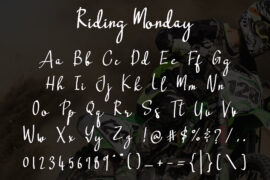 Riding Monday
Aa Bb Cc Dd Ee Ff Gg
Hh Ii Jj Kk Ll Mm Nn
Oo Pp Qq Rr Ss Tt Uu Vv
Ww Xx Yy Zz ! @ # $ % & ? / . .
0123456789 " " ( ) _ + - = { | } [ \ ]